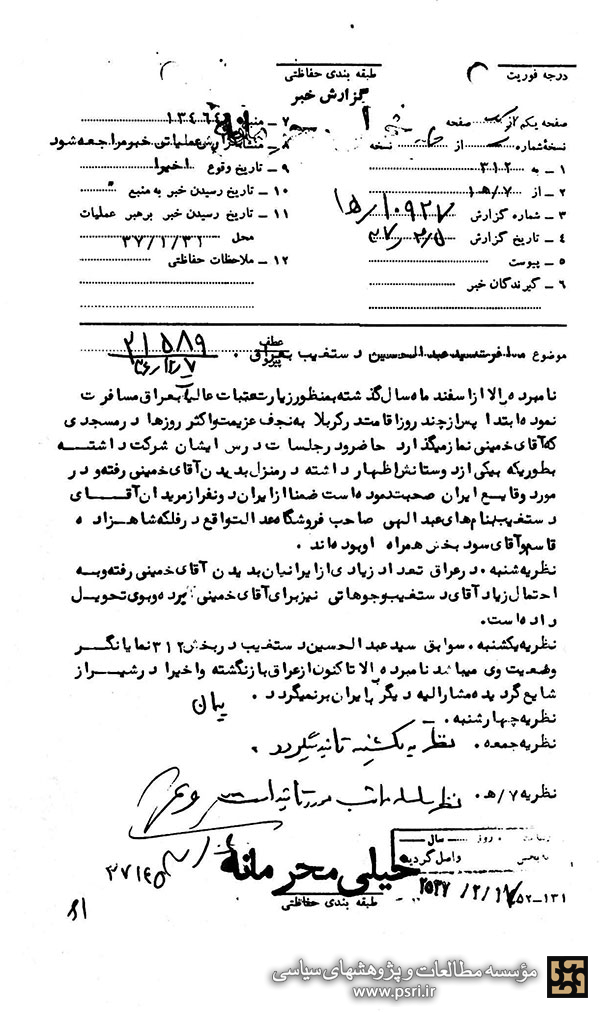 درجه فوریت
طبقه بندی حفاظتی
گزارش خبر
صفحه یکم از صفحه
نسخه شماره از نسخه
۱ ـ به ۳۱۲
۲ ـ از ۷/ه۱
۳ ـ شماره گزارش ۱۰۹۲۷/ه۱۵
۴ ـ تاریخ گزارش ۳۷/۲/۵
۵ ـ پیوست
۶ ـ گیرندگان خبر
۷ ـ منبع ۱۳۴۶۴
۸ ـ منشاء عملیاتی خبر مراجعه شود
۹ ـ تاریخ وقوع اخیرا
۱۰ ـ تاریخ رسیدن خبر به منبع
۱۱ ـ تاریخ رسیدن خبر برهبر عملیات
محل ۳۷/۱/۳۱
۱۲ ـ ملاحظات حفاظتی
موضوع مسافرت سید عبدالحسین دستغیب بعراق .
عطف
پیرو
۲۱۵۸۹
۳۶/۱۲/۷
نامبرده بالا از اسفند ماه سال گذشته بمنظور زیارت عتبات عالیات بعراق مسافرت
نموده ابتدا پس از چند روز اقامت در کربلا به نجف عزیمت و اکثر روزها در مسجدی
که آقای خمینی نماز میگذارد حاضر و در جلسات درس ایشان شرکت داشته
بطوریکه بیکی از دوستانش اظهار داشته در منزل بدیدن آقای خمینی رفته و در
مورد وقایع ایران صحبت نموده است ضمنا از ایران دو نفر از مریدان آقای
دستغیب بنام های عبدالهی صاحب فروشگاه عدالت واقع در فلکه شاهزاده
قاسم و آقای سودبخش همراه او بوده اند .
نظریه شنبه . در عراق تعداد زیادی از ایرانیان بدیدن آقای خمینی رفته و به
احتمال زیاد آقای دستغیب وجوهاتی نیز برای آقای خمینی برده و بوی تحویل
داده است .
نظریه یکشنبه . سوابق سید عبدالحسین دستغیب در بخش ۳۱۲ نمایانگر
وضعیت وی میباشد نامبرده بالا تاکنون از عراق بازنگشته و اخیرا در شیراز
شایع گردیده مشارالیه دیگر بایران برنمیگردد .
نظریه چهارشنبه .
نظریه جمعه . نظریه یکشنبه تائید میگردد .
نظریه ۷/ه . نظر سلسله مراتب مورد تائید است
روز سال
به بخش واصل گردید
۲۵۳۷/۲/۱۷
خیلی محرمانه
طبقه بندی حفاظتی
۵۲-۱۳۱
۸۱
مؤسسه مطالعات و پژوهشهای سیاسی
www.psri.ir